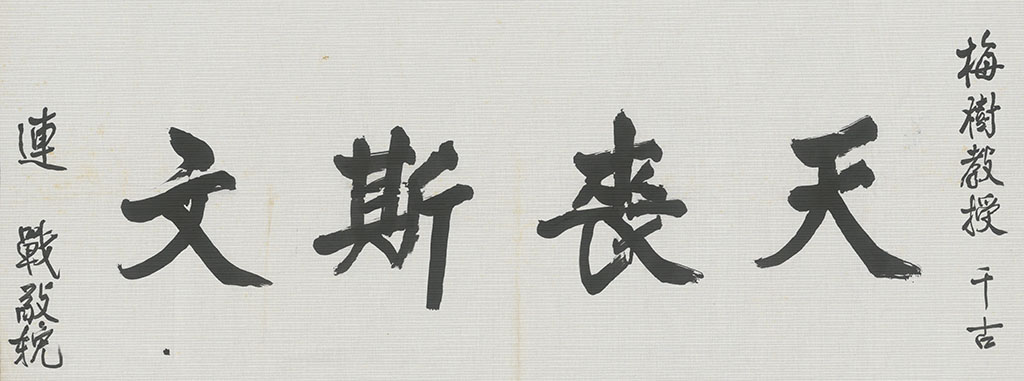 梅樹教授 千古
天喪斯文
連戰敬輓